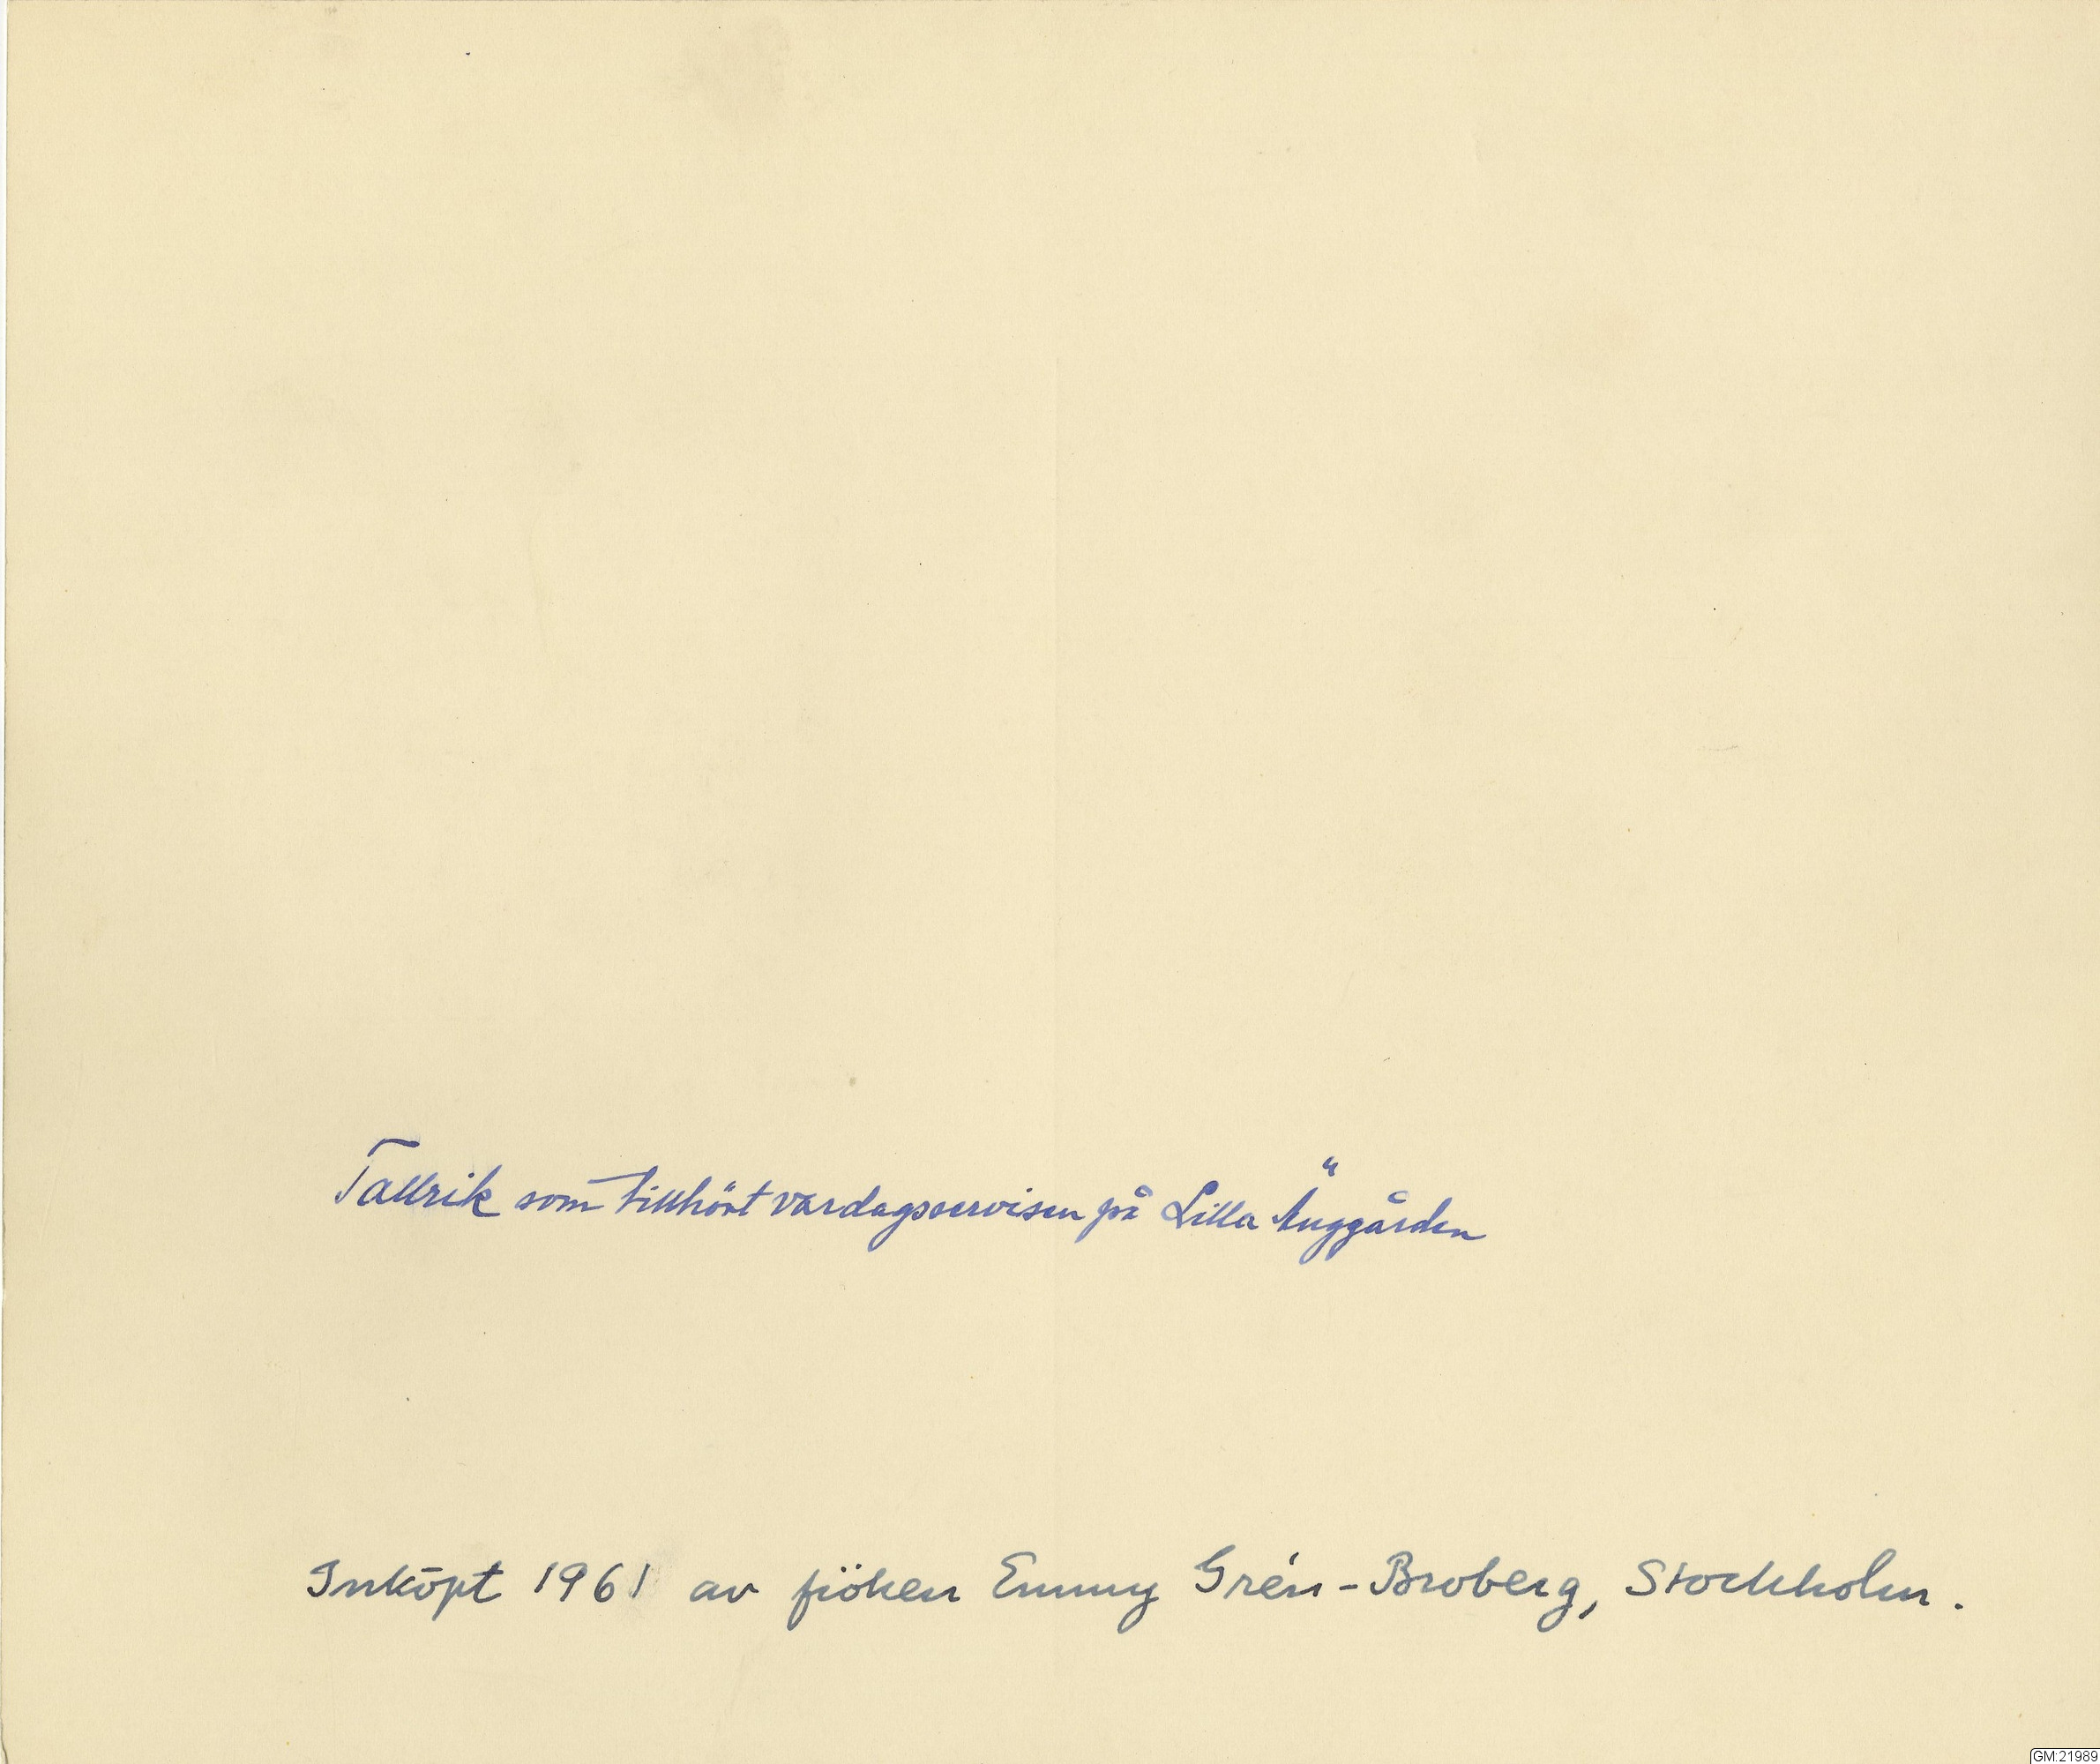 Tallrik som tillhört vardagsservisen på Lilla Änggården
Inköpt 1961 av fröken Emmy Grén-Broberg, Stockholm.
GM:21989